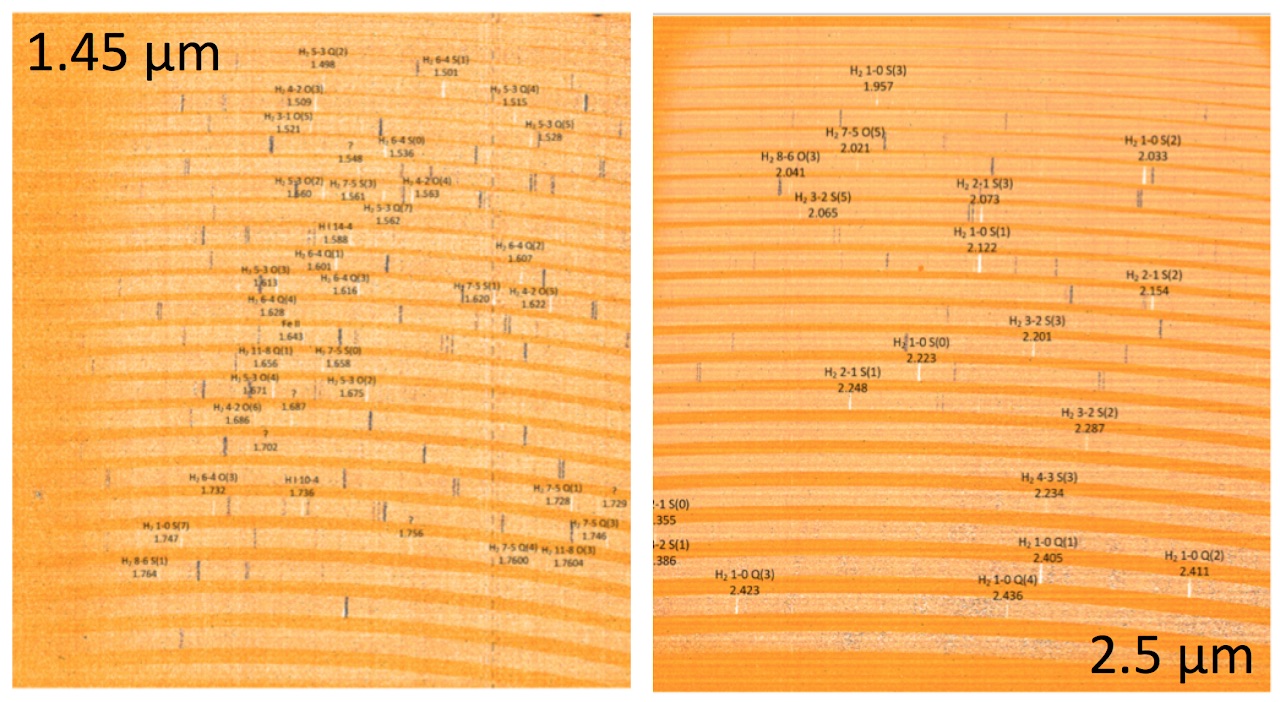 1.45 µm
H₂ 5-3 Q(2)
1.498
H₂ 6-4 S(1)
1.501
H₂ 4-2 O(3)
1.509
H₂ 5-3 Q(4)
1.515
H₂ 3-1 O(5)
1.521
H₂ 5-3 Q(5)
1.528
H₂ 6-4 S(0)
1.536
?
1.548
H₂ 5-3 O(2)
1.560
H₂ 7-5 S(3)
1.561
H₂ 4-2 O(4)
1.563
H₂ 5-3 Q(7)
1.562
H I 14-4
1.588
H₂ 6-4 Q(2)
1.607
H₂ 6-4 Q(1)
1.601
H₂ 5-3 O(3)
1.613
H₂ 6-4 Q(3)
1.616
H₂ 7-5 S(1)
1.620
H₂ 4-2 O(5)
1.622
H₂ 6-4 Q(4)
1.628
Fe II
1.643
H₂ 11-8 Q(1)
1.656
H₂ 7-5 S(0)
1.658
H₂ 5-3 O(4)
1.671
H₂ 5-3 O(2)
1.675
?
1.687
H₂ 4-2 O(6)
1.686
?
1.702
H₂ 6-4 O(3)
1.732
H I 10-4
1.736
H₂ 7-5 Q(1)
1.728
?
1.729
H₂ 1-0 S(7)
1.747
?
1.756
H₂ 7-5 Q(3)
1.746
H₂ 7-5 Q(4)
1.7600
H₂ 11-8 O(3)
1.7604
H₂ 8-6 S(1)
1.764
H₂ 1-0 S(3)
1.957
H₂ 7-5 O(5)
2.021
H₂ 1-0 S(2)
2.033
H₂ 8-6 O(3)
2.041
H₂ 2-1 S(3)
2.073
H₂ 3-2 S(5)
2.065
H₂ 1-0 S(1)
2.122
H₂ 2-1 S(2)
2.154
H₂ 3-2 S(3)
2.201
H₂ 1-0 S(0)
2.223
H₂ 2-1 S(1)
2.248
H₂ 3-2 S(2)
2.287
H₂ 4-3 S(3)
2.234
2-1 S(0)
.355
-2 S(1)
.386
H₂ 1-0 Q(1)
2.405
H₂ 1-0 Q(2)
2.411
H₂ 1-0 Q(3)
2.423
H₂ 1-0 Q(4)
2.436
2.5 µm